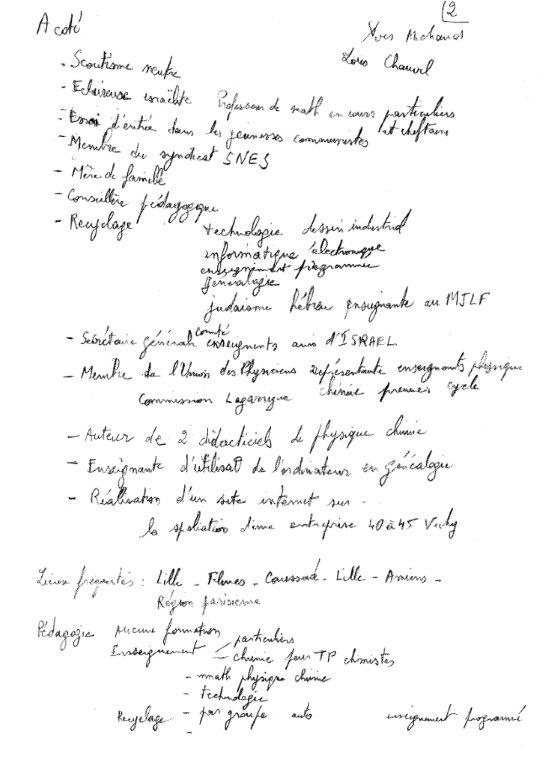 2
A coté
Yves Michaud
Loïs Chauvel
- Scoutisme neutre
- Eclaireuse israëlite Professeur de math en cours particuliers
et cheftaine
- Essai d'entrée dans les jeunesses communistes
- Membre du syndicat SNES
- Mère de famille
- Conseillère pédagogique
- Recyclage technologie dessin industriel
informatique électronique
enseignement programmée
généalogie
judaïsme hébreu enseignante au MJLF
- Secrétaire générale comité enseignants amis d'ISRAEL
- Membre de l'Union des Physiciens représentante enseignants physique
Commission Lagarrigue chimie premier cycle
- Auteur de 2 didacticiels de physique chimie
- Enseignante d'utilisat de l'ordinateur en généalogie
- Réalisation d'un site internet sur
la spoliation d'une entreprise 40 à 45 Vichy
Lieux fréquentés : Lille - Flines - Caussade - Lille - Amiens -
Région parisienne
Pédagogie Aucune formation
Enseignement - particuliers
- chimie pour TP chimistes
- math physique chimie
- technologie
Recyclage - par groupe auto enseignement programmé
-